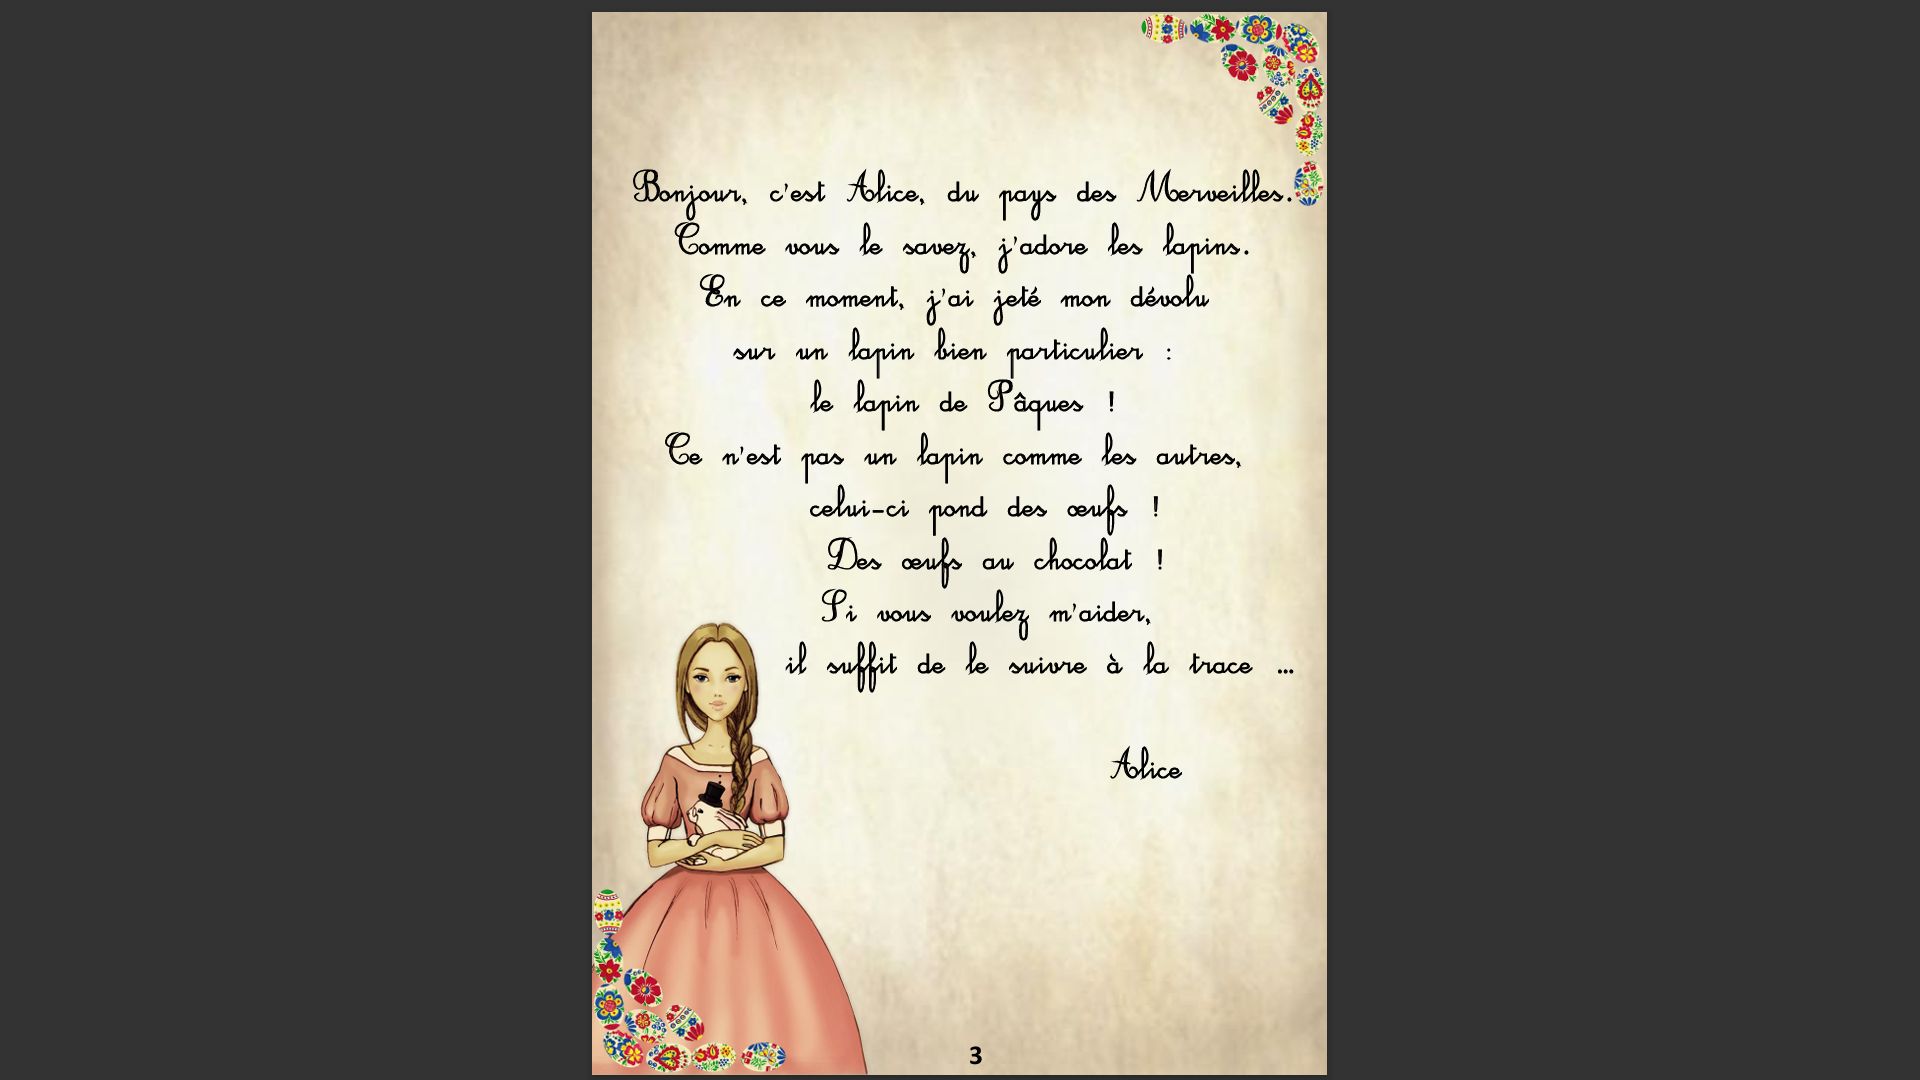 Bonjour, c'est Alice, du pays des Merveilles.
Comme vous le savez, j'adore les lapins.
En ce moment, j'ai jeté mon dévolu
sur un lapin bien particulier :
le lapin de Pâques !
Ce n'est pas un lapin comme les autres,
celui-ci pond des œufs !
Des œufs au chocolat !
Si vous voulez m'aider,
il suffit de le suivre à la trace ...
Alice
3